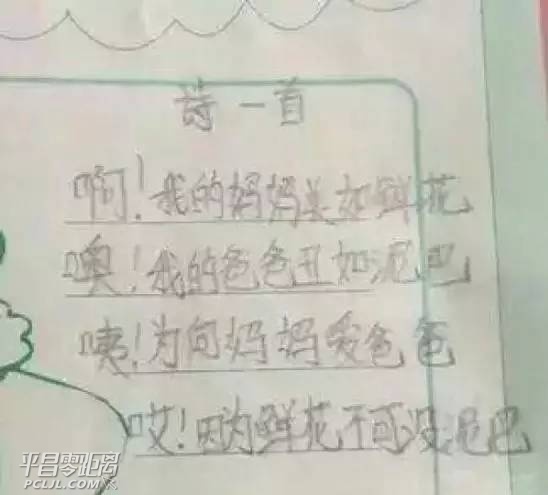 诗一首
啊!我的妈妈美如鲜花
噢!我的爸爸丑如泥巴
咦!为何妈妈爱爸爸
哎!因为鲜花不可没泥巴
平昌零距离
PCLJL.COM